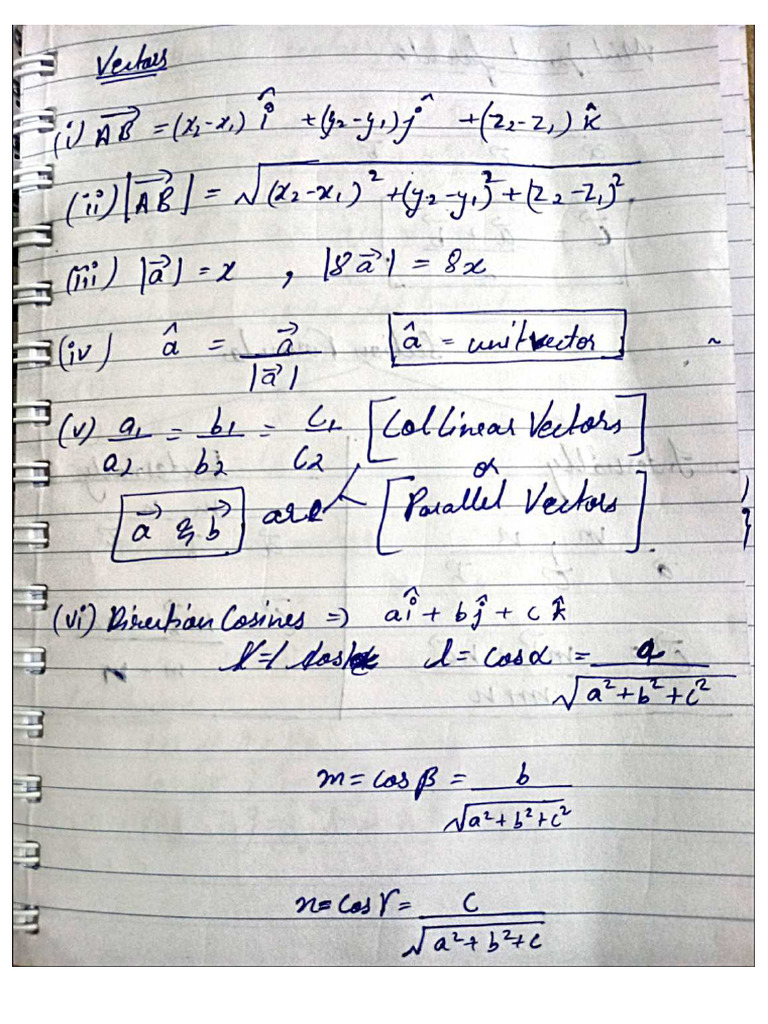 Vectors
(i) $\overrightarrow{AB} = (x_2-x_1)\hat{i} + (y_2-y_1)\hat{j} + (z_2-z_1)\hat{k}$
(ii) $|\overrightarrow{AB}| = \sqrt{(x_2-x_1)^2+(y_2-y_1)^2+(z_2-z_1)^2}$
(iii) $|\vec{a}| = x$ , $|8\vec{a}| = 8x$
(iv) $\hat{a} = \frac{\vec{a}}{|\vec{a}|}$ [$\hat{a}$ = unit vector]
(v) $\frac{a_1}{a_2} = \frac{b_1}{b_2} = \frac{c_1}{c_2}$ [Collinear Vectors]
or
$\vec{a}$ & $\vec{b}$ are [Parallel Vectors].
(vi) Direction Cosines ⇒ $a\hat{i} + b\hat{j} + c\hat{k}$
$l = \cos\alpha = \frac{a}{\sqrt{a^2+b^2+c^2}}$
$m = \cos\beta = \frac{b}{\sqrt{a^2+b^2+c^2}}$
$n = \cos\gamma = \frac{c}{\sqrt{a^2+b^2+c}}$